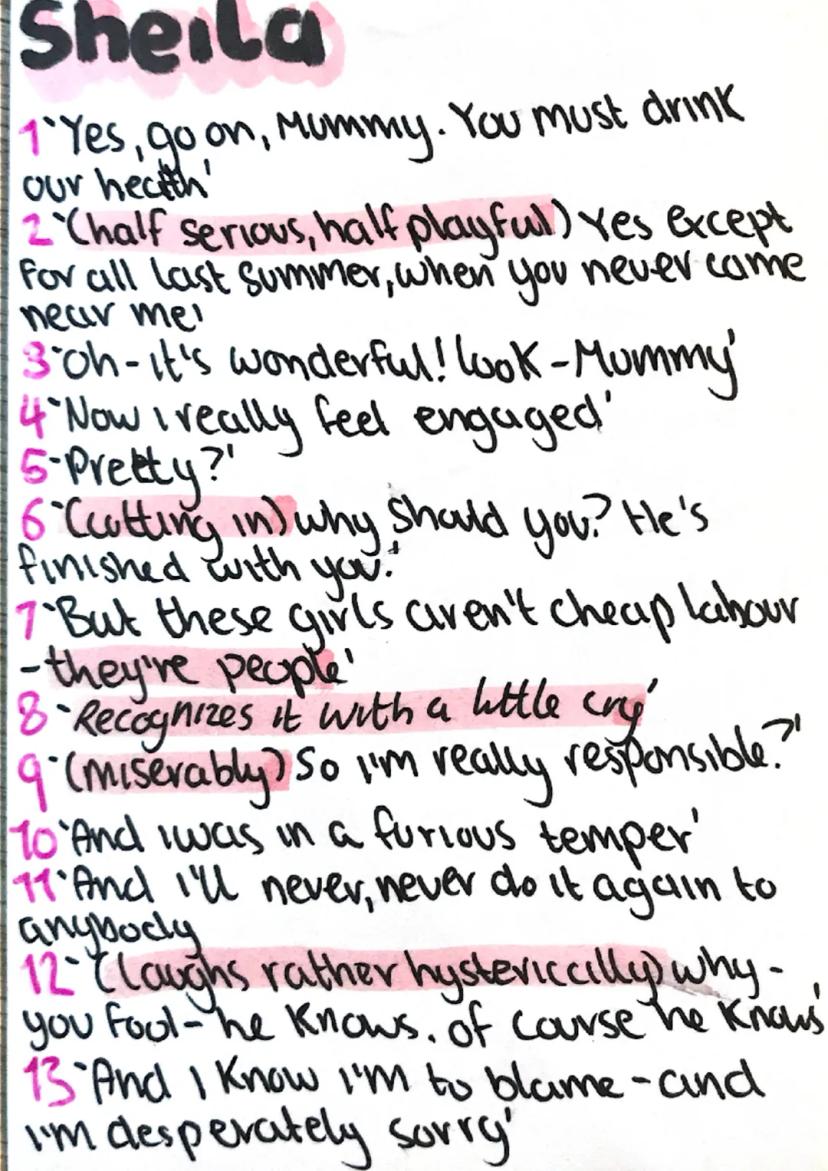 Sheila
1 'Yes, go on, Mummy. You must drink
our health'
2 '(half serious, half playful) Yes except
for all last summer, when you never came
near me'
3 'Oh - it's wonderful! look - Mummy'
4 'Now i really feel engaged'
5 'Pretty?'
6 '(cutting in) why should you? He's
finished with you.'
7 'But these girls aren't cheap labour
- they're people'
8 'Recognizes it with a little cry'
9 '(miserably) So I'm really responsible?'
10 'And i was in a furious temper'
11 'And I'll never, never do it again to
anybody
12 '(laughs rather hysterically) why -
you fool - he knows. of course he knows'
13 'And I know I'm to blame - and
I'm desperately sorry'